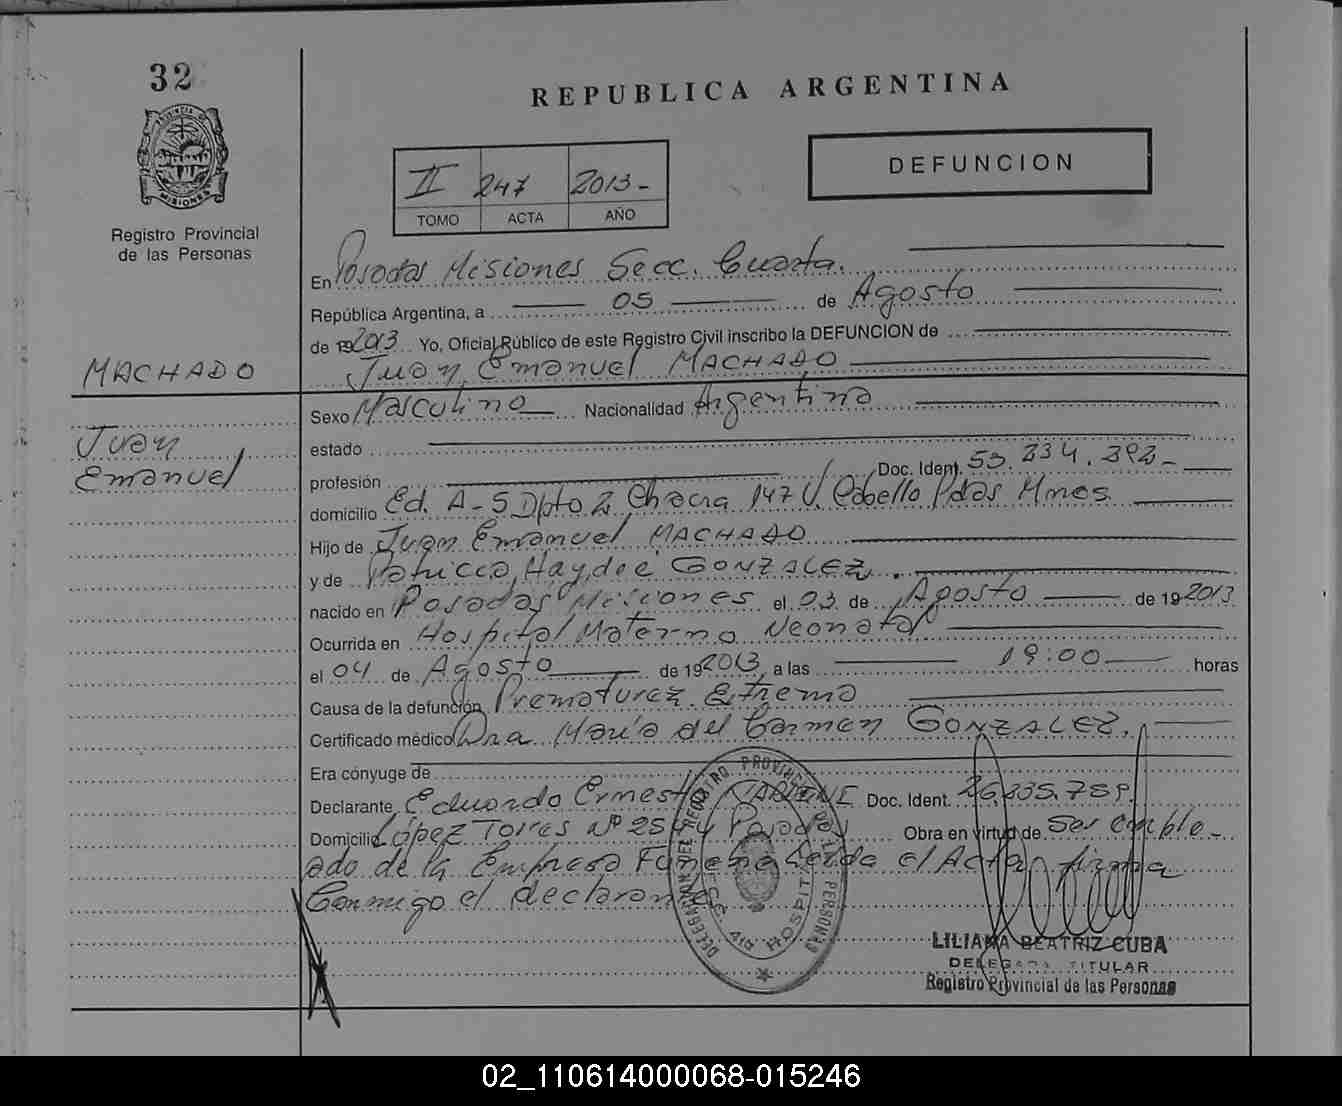 32
REPUBLICA ARGENTINA
PROVINCIA DE
MISIONES
Registro Provincial
de las Personas
DEFUNCION
II 247 2013-
TOMO ACTA AÑO
En Posadas Misiones Secc. Cuarta.
República Argentina, a 05 de Agosto
de 192013 Yo, Oficial Público de este Registro Civil inscribo la DEFUNCION de
MACHADO
Juan Emanuel MACHADO
Juan
Emanuel
Sexo Masculino Nacionalidad Argentina
estado
profesión Doc. Ident. 53.234.392-
domicilio Ed. A-5 Dpto 2 Chacra 147 V. Cabello Pdas Mnes.
Hijo de Juan Emanuel MACHADO
y de Patricia Haydee GONZALEZ.
nacido en Posadas Misiones el 03 de Agosto de 192013
Ocurrida en Hospital Materno Neonatal
el 04 de Agosto de 192013, a las 19:00 horas
Causa de la defunción Prematurez Extrema
Certificado médico Dra. María del Carmen GONZALEZ.
Era cónyuge de
Declarante Eduardo Ernesto Doc. Ident. 26.335.759.
Domicilio López Torres Nº 25 Posadas Obra en virtud de Ser emple-
ado de la Empresa Leida el Acta firma
Conmigo el declarante
DELEGACION DEL REGISTRO PROVINCIAL DE LAS PERSONAS
HOSPITAL
LILIANA BEATRIZ CUBA
DELEGADA TITULAR
Registro Provincial de las Personas
02_110614000068-015246